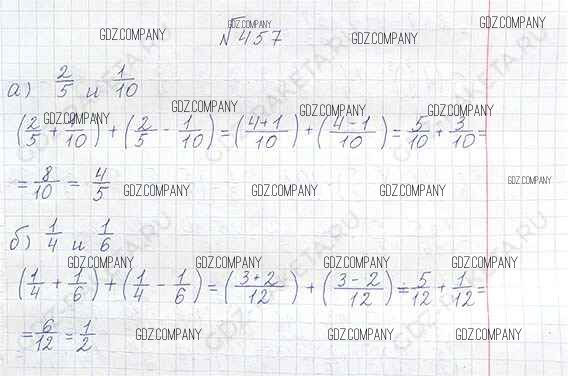 GDZ.COMPANY №457 GDZ.COMPANY GDZ.COMPANY GDZ.COMPANY
а) 2/5 и 1/10
GDZ.COMPANY GDZ.COMPANY GDZ.COMPANY GDZ.COMPANY
(2/5 + 1/10) + (2/5 - 1/10) = (4+1/10) + (4-1/10) = 5/10 + 3/10 =
= 8/10 = 4/5 GDZ.COMPANY GDZ.COMPANY GDZ.COMPANY GDZ.COMPANY
б) 1/4 и 1/6
GDZ.COMPANY GDZ.COMPANY GDZ.COMPANY GDZ.COMPANY
(1/4 + 1/6) + (1/4 - 1/6) = (3+2/12) + (3-2/12) = 5/12 + 1/12 =
= 6/12 = 1/2 GDZ.COMPANY GDZ.COMPANY GDZ.COMPANY